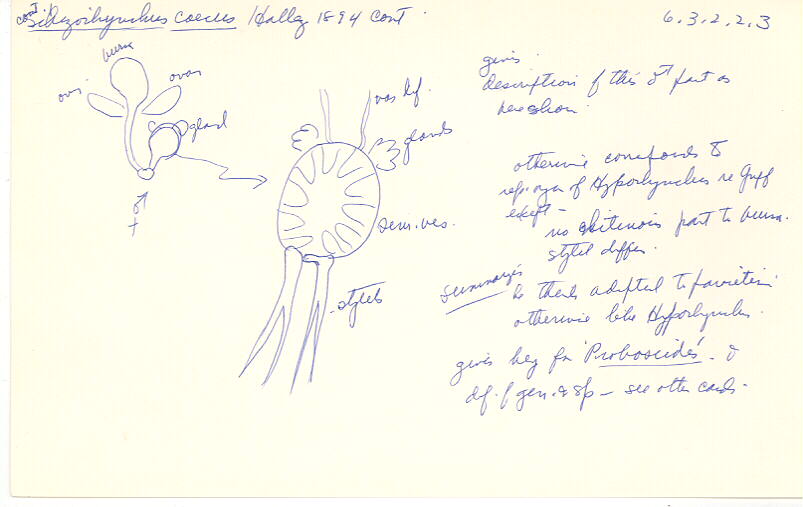 cont Schizorhynchus coecus Hallez 1894 cont
6.3.2.2.3
bursa
ov.
ovar
gland
♀ ♂
vas df.
glands
sem. ves.
stylets
gives
description of this ♂ part as
here shown.
otherwise corresponds to
rep. organ of Hyporhynchus re Graff
except –
no chitinous part to bursa.
stylet differs.
Summarizes
otherwise like Hyporhynchus.
gives key for 'Proboscidés' - &
df. of gen. & sp – see other cards.